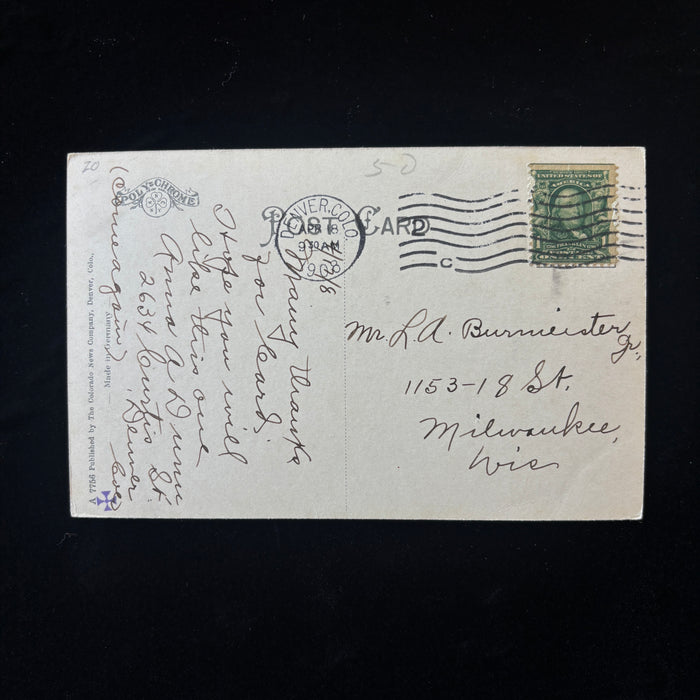 20
50
POLY-CHROME
POST CARD
DENVER, COLO.
APR 18
9 30 AM
1908
C
UNITED STATES OF
AMERICA
FRANKLIN
ONE CENT
4/17/08
Many thanks
for Card.
Hope you will
like this one
Anna A Dunn
2634 Curtis St.
Denver
Colo
(Come again)
Mr. L. A. Burmeister Jr.,
1153-18 St.
Milwaukee,
Wis
A 7756 Published by The Colorado News Company, Denver, Colo.,
Made in Germany